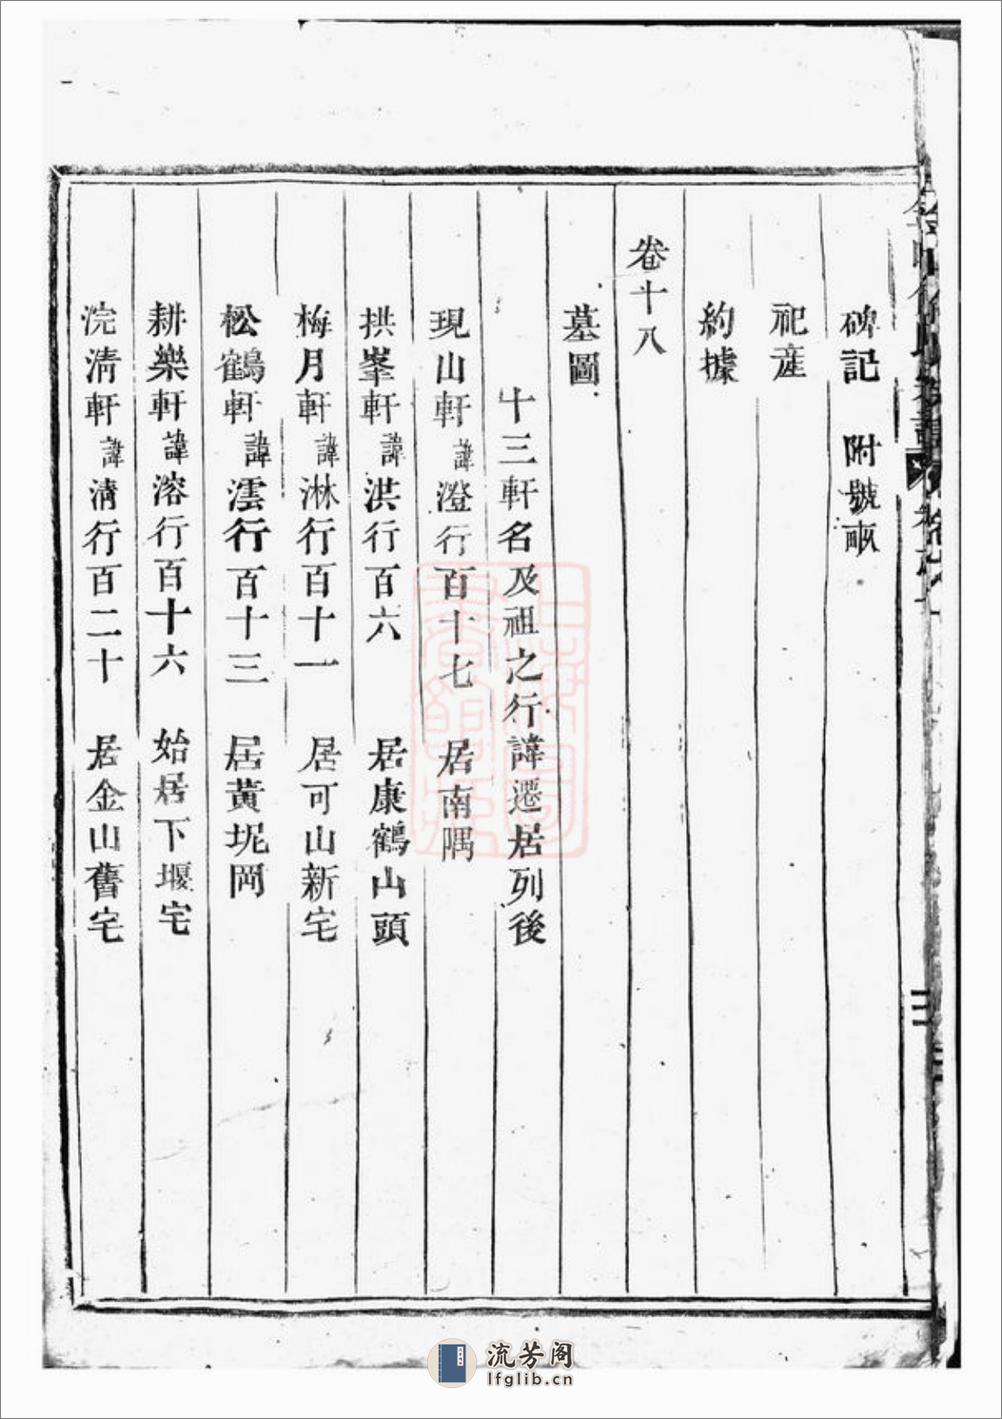 碑記　附號畝
祀產
約據
卷十八
墓圖
十三軒名及祖之行諱遷居列後
現山軒諱澄行百十七　居南隅
拱峯軒諱洪行百六　居康鶴山頭
梅月軒諱淋行百十一　居可山新宅
松鶴軒諱澐行百十三　居黃坭岡
耕樂軒諱溶行百十六　始居下堰宅
浣淸軒諱淸行百二十　居金山舊宅
三
流芳阁
lfglib.cn